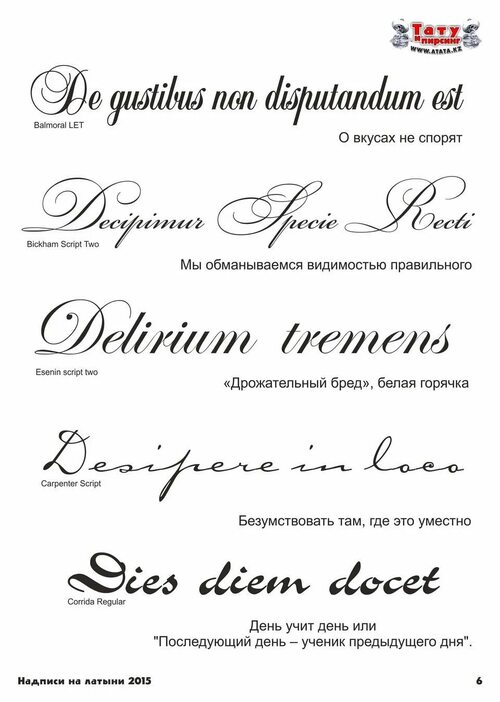 Тату
и пирсинг
www.ATATA.KZ
De gustibus non disputandum est
Balmoral LET
О вкусах не спорят
Decipimur Specie Recti
Bickham Script Two
Мы обманываемся видимостью правильного
Delirium tremens
Esenin script two
«Дрожательный бред», белая горячка
Desipere in loco
Carpenter Script
Безумствовать там, где это уместно
Dies diem docet
Corrida Regular
День учит день или
"Последующий день – ученик предыдущего дня".
Надписи на латыни 2015
6